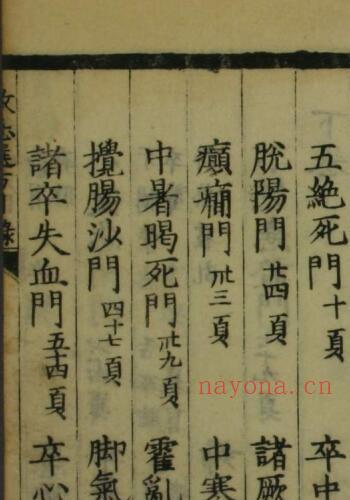 五絶死門十頁 卒中
脫陽門廿四頁 諸厥
癲癇門卅三頁 中寒
中暑暍死門卅九頁 霍亂
攪腸沙門四十七頁 脚氣
諸卒失血門五十四頁 卒心
nayona.cn